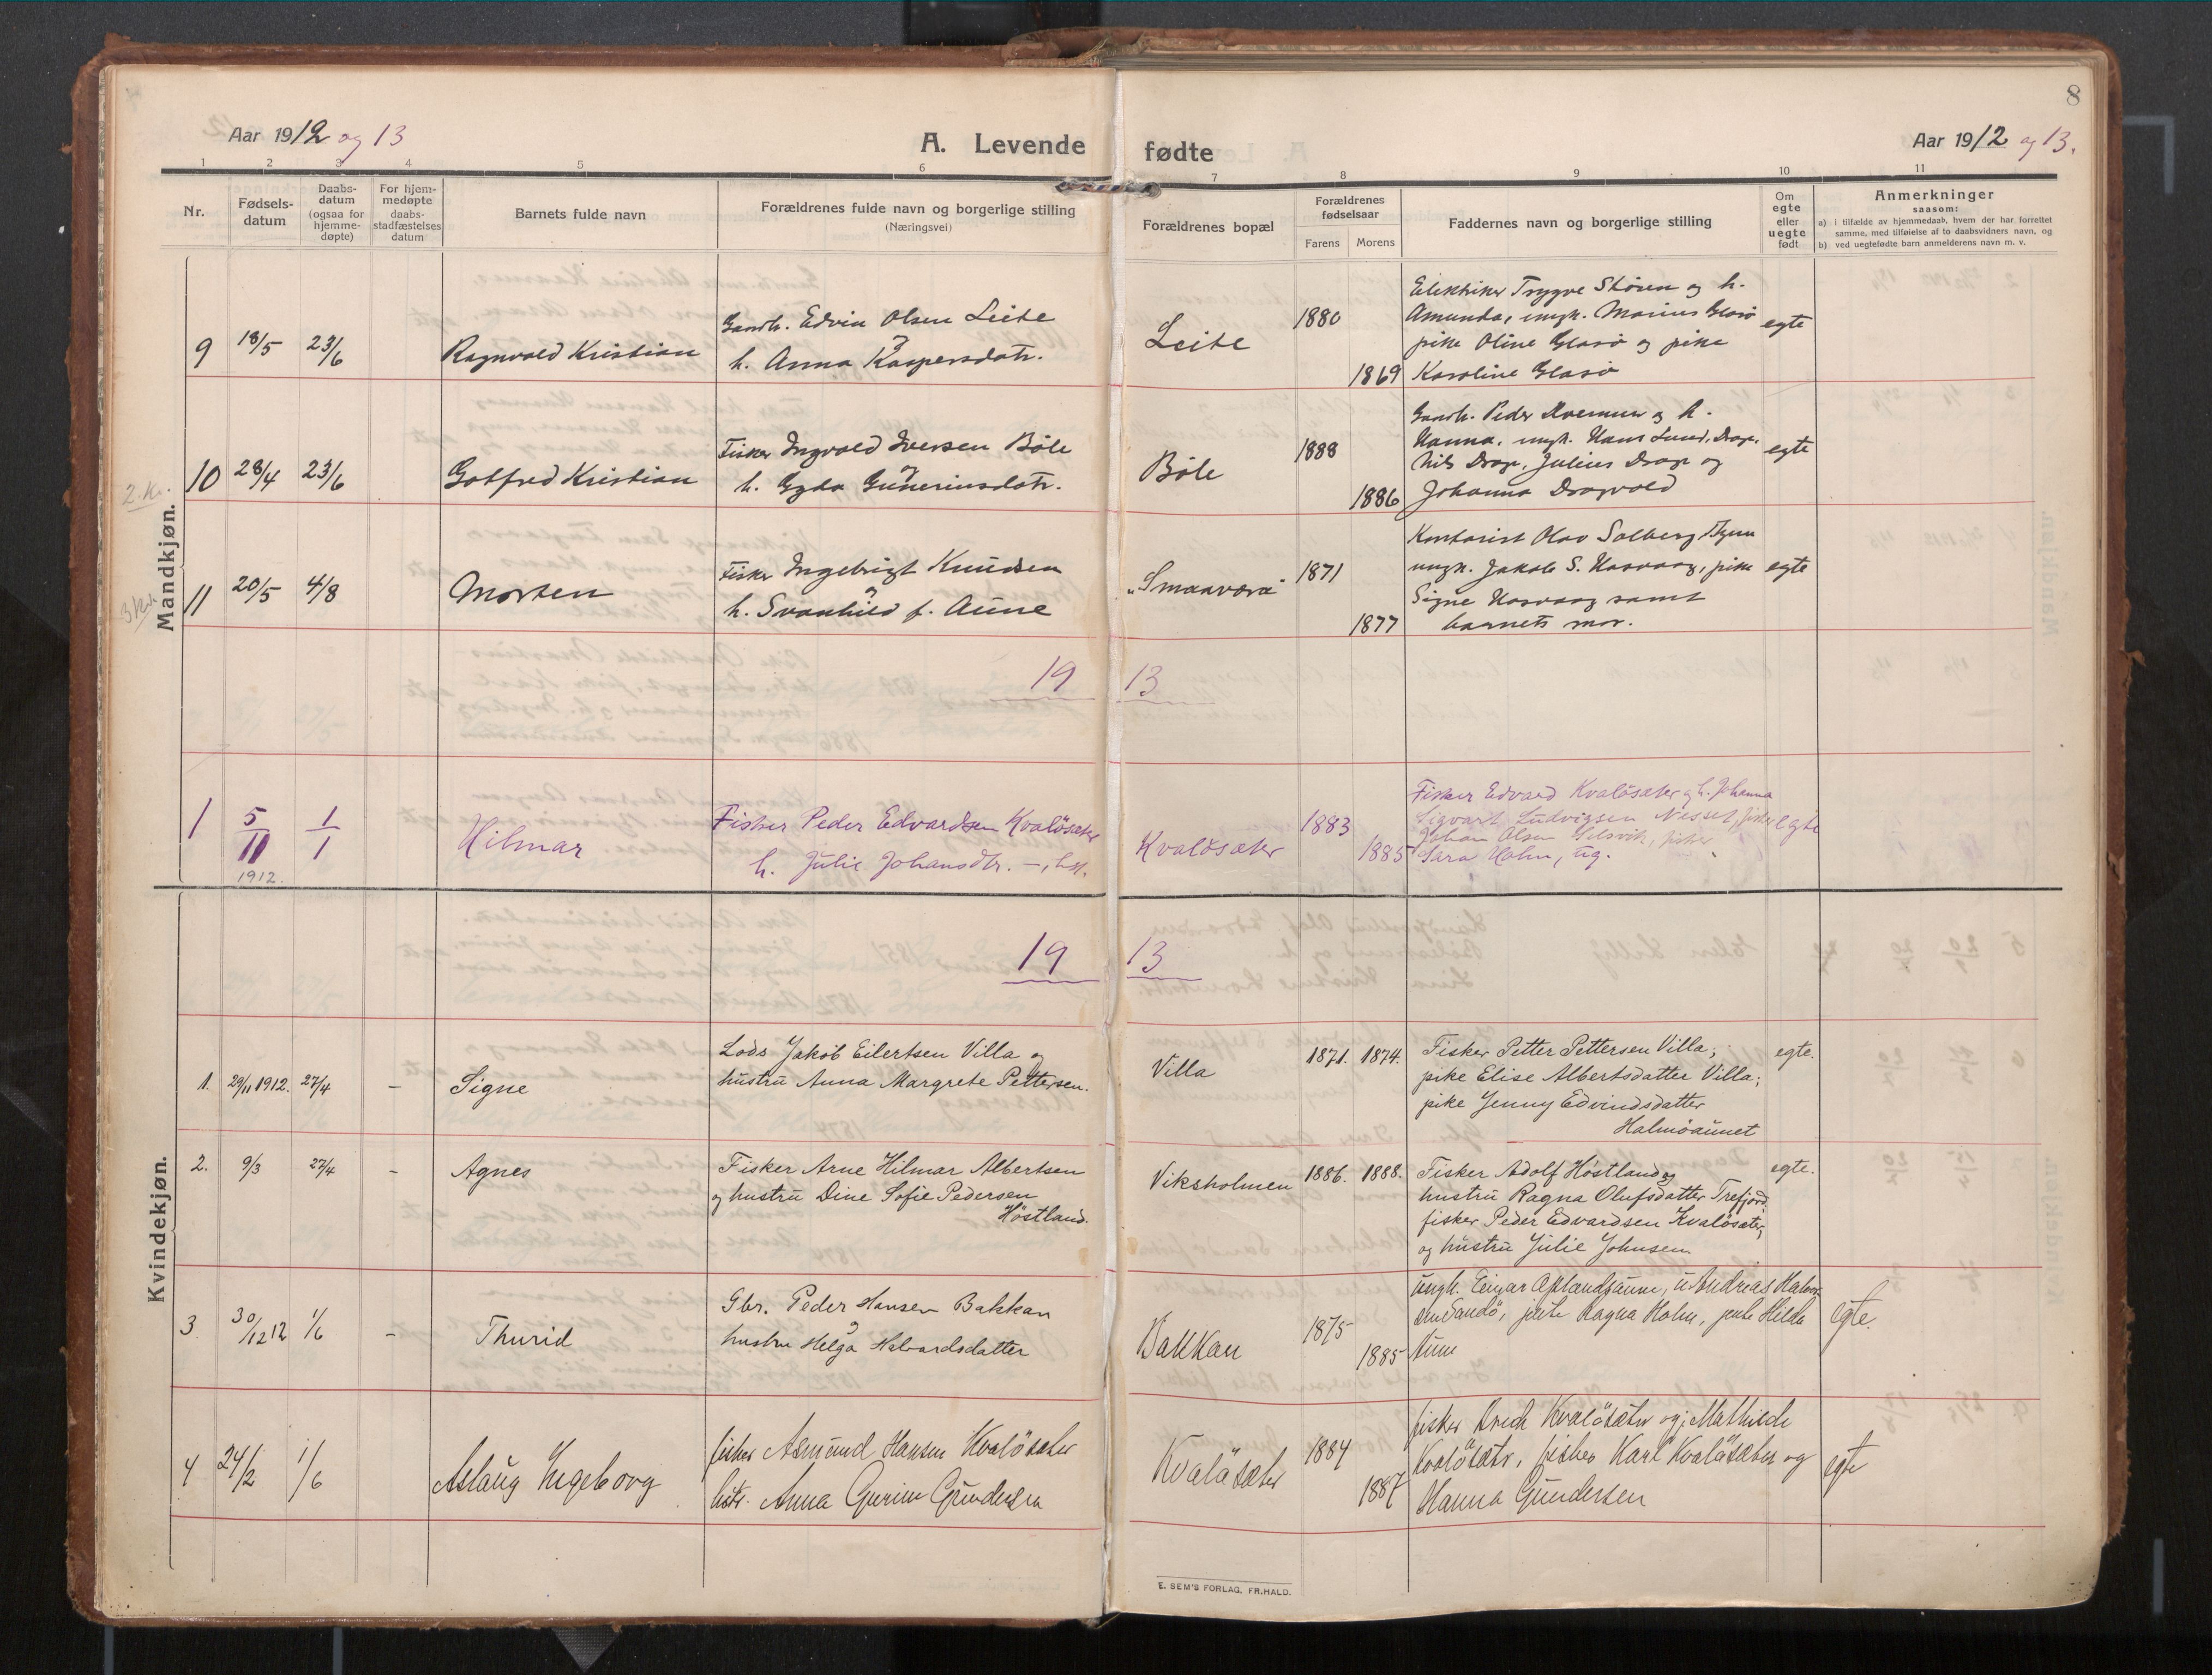 8
Aar 1912 og 13
A. Levende fødte
Aar 1912 og 13.
1 2 3 4 5 6 7 8 9 10 11
Nr.
Fødsels-
datum
Daabs-
datum
(ogsaa for
hjemme-
døpte)
For hjem-
medøpte
daabs-
stadfæstelses
datum
Barnets fulde navn
Forældrenes fulde navn og borgerlige stilling
(Næringsvei)
Forældrenes bopæl
Forældrenes
fødselsaar
Farens Morens
Faddernes navn og borgerlige stilling
Om
egte
eller
uegte
født
Anmerkninger
saasom:
a) i tilfælde av hjemmedaab, hvem der har forrettet
samme, med tilføielse af to daabsvidners navn, og
b) ved uegtefødte barn anmelderens navn m. v.
Mandkjøn.
9 18/5 23/6 Ragnvald Kristian
Gaardb. Edvin Olsen Leite
h. Anna Kaspersdatr.
Leite
1880
1869
Elektriker Trygve Støren og h.
Amunda, ungk. Marius Glasø
pike Oline Glasø og pike
Karoline Glasø
egte
2 Kr.
10 28/4 23/6 Gotfred Kristian
Fisker Ingvald Iversen Bøle
h. Gyda Guneriusdatr.
Bøle
1888
1886
Gaardb. Peder og h.
Hanna, ungk. Hans Lund, Drag,
Nils Drag, Julius Drag og
Johanna Dragvold
egte
3 Kr.
11 20/5 4/8 Morten
Fisker Ingebrigt Knudsen
h. Svanhild f. Aune
"Smaaværa"
1871
1877
Kontorist Olav Solberg
ungk. Jakob S. Hasvaag, pike
Signe Hasvaag samt
barnets mor.
egte
19 13
1 5/11 1912. 1/1 Hilmar
Fisker Peder Edvardsen Kvaløsæter
h. Julie Johansdtr. —, hst.
Kvaløsæter
1883
1885
Fisker Edvard Kvaløsæter og h. Johanna
Sigvart Ludvigsen Nesset, fisker
Johan Olsen , fisker
Sara Holm, ug.
egte
Kvindekjøn.
19 13
1. 29/11 1912. 27/4 – Signe
Lods Jakob Eilertsen Villa og
hustru Anna Margrete Pettersen.
Villa
1871. 1874.
Fisker Petter Pettersen Villa;
pike Elise Albertsdatter Villa;
pike Jenny Edvindsdatter
Halmøaunet
egte.
2. 9/3 27/4 – Agnes
Fisker Arne Hilmar Albertsen
og hustru Dine Sofie Pedersen
Høstland.
Viksholmen
1886. 1888.
Fisker Adolf Høstland og
hustru Ragna Olufsdatter Trefjord;
fisker Peder Edvardsen Kvaløsæter,
og hustru Julie Johnsen
egte.
3. 30/12 12 1/6 – Thurid
Gbr. Peder Hansen Bakkan
hustru Helga Halvardsdatter
Bakkan
1875
1885
ungk. Einar Oplandsaune, u. Andreas
Sandø, pike Ragna Holm, pike Hilda
Aune
egte.
4 24/2 1/6 Aslaug Ingeborg
fisker Asmund Hansen Kvaløsæter
hstr. Anna Gurine Gundersen
Kvaløsæter
1884
1887
fisker Kvaløsæter og Mathilde
Kvaløsætr, fisker Karl Kvaløsæter og
Hanna Gundersen
egte
E. SEM'S FORLAG, FR.HALD.